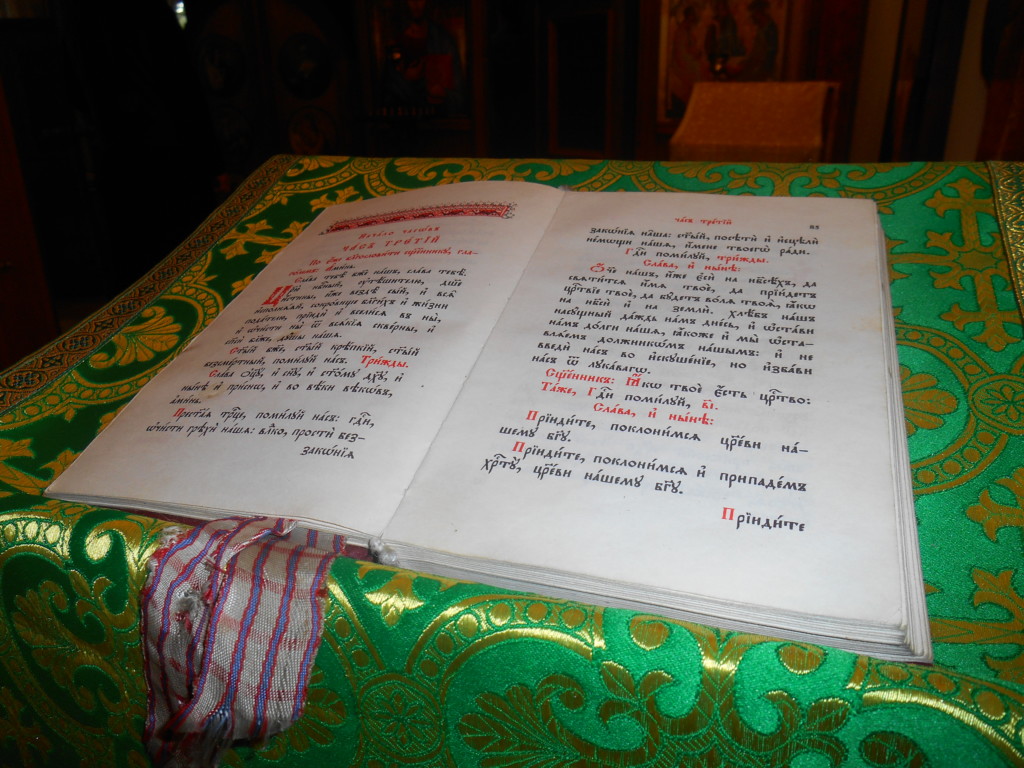 Начало часѡвъ
ЧАСЪ ТРЕ́ТІЙ
По о҆бы́чномъ
Сла́ва тебѣ̀ бж҃е на́шъ, сла́ва тебѣ̀.
Цр҃ю̀ нбⷭ҇ный, ᲂу҆тѣ́шителю, дш҃е
и҆́стины, и҆́же вездѣ̀ сы́й, и҆ всѧ̑
и҆сполнѧ́ѧй, сокро́вище бл҃ги́хъ и҆ жи́зни
пода́телю, прїидѝ и҆ всели́сѧ въ ны̀,
и҆ ѡ҆чи́сти ны̀ ѿ всѧ́кїѧ сква́рны, и҆
сп҃сѝ бл҃же, дꙋ́шы на́шѧ.
Ст҃ы́й бж҃е, ст҃ы́й крѣ́пкїй, ст҃ы́й
безсме́ртный, поми́лꙋй на́съ. Три́жды.
Сла́ва ѻ҆ц҃ꙋ̀, и҆ сн҃ꙋ, и҆ ст҃о́мꙋ дх҃ꙋ, и҆
ны́нѣ и҆ при́снѡ, и҆ во вѣ́ки вѣкѡ́въ,
а҆ми́нь.
Прест҃а́ѧ трⷪ҇це, поми́лꙋй на́съ: гдⷭ҇и,
ѡ҆чи́сти грѣхѝ на́шѧ: влⷣко, простѝ без-
закѡ́нїѧ
ча́съ тре́тїй
закѡ́нїѧ на̑ша: ст҃ы́й, посѣтѝ и҆ и҆сцѣлѝ
не́мѡщи на́шѧ, и҆́мене твоегѡ̀ ра́ди.
Гдⷭ҇и поми́лꙋй, три́жды.
Сла́ва, и҆ ны́нѣ:
Ѻ҆́ч҃е на́шъ, и҆́же є҆сѝ на нб҃сѣ́хъ, да
ст҃и́тсѧ и҆́мѧ твоѐ, да прїи́детъ
црⷭ҇твїе твоѐ, да бꙋ́детъ во́лѧ твоѧ̀, ꙗ҆́кѡ
на нб҃сѝ и҆ на землѝ. хлѣ́бъ на́шъ
насꙋ́щный да́ждь на́мъ дне́сь, и҆ ѡ҆ста́ви
на́мъ до́лги на́шѧ, ꙗ҆́коже и҆ мы̀ ѡ҆ста-
влѧ́емъ должникѡ́мъ на́шымъ: и҆ не
введѝ на́съ во и҆скꙋше́нїе, но и҆зба́ви
на́съ ѿ лꙋка́вагѡ.
Сщ҃е́нникъ: Ꙗ҆́кѡ твоѐ є҆́сть црⷭ҇тво:
Та́же, Гдⷭ҇и поми́лꙋй, в҃і.
Сла́ва, и҆ ны́нѣ:
Прїиди́те, поклони́мсѧ цр҃е́ви на́-
шемꙋ бг҃ꙋ.
Прїиди́те, поклони́мсѧ и҆ припаде́мъ
хрⷭ҇тꙋ̀, цр҃е́ви на́шемꙋ бг҃ꙋ.
Прїиди́те